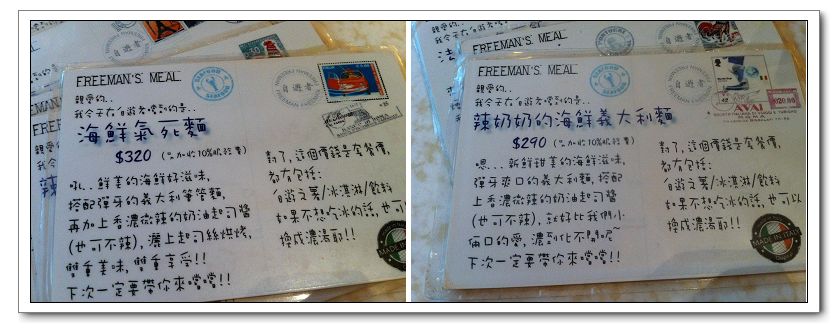 FREEMAN'S MEAL
SEAFOOD
自遊者
親愛的..
我今天在自遊者嚐到的是..
海鮮氣死麵
$320 (需加收10%服務費)
吼.. 鮮美的海鮮好滋味,
搭配彈牙的義大利筆管麵,
再加上香濃微辣的奶油起司醬
(也可不辣), 灑上起司絲烘烤,
雙重美味, 雙重享受!!
下次一定要帶你來嚐嚐!!
對了, 這個價錢是套餐價,
都有包括:
自遊之薯/冰淇淋/飲料
如果不想吃冰的話, 也可以
換成濃湯耶!!
MADE IN ITALY
FREEMAN'S MEAL
SEAFOOD
自遊者
親愛的..
我今天在自遊者嚐到的是..
辣奶奶的海鮮義大利麵
$290 (需加收10%服務費)
嗯... 新鮮甜美的海鮮滋味,
彈牙爽口的義大利麵, 搭配
香濃微辣的奶油起司醬
(也可不辣), 就好比我們小
倆口的愛, 濃到化不開呢~
下次一定要帶你來嚐嚐!!
對了, 這個價錢是套餐價,
都有包括:
自遊之薯/冰淇淋/飲料
如果不想吃冰的話, 也可以
換成濃湯耶!!
MADE IN ITALY